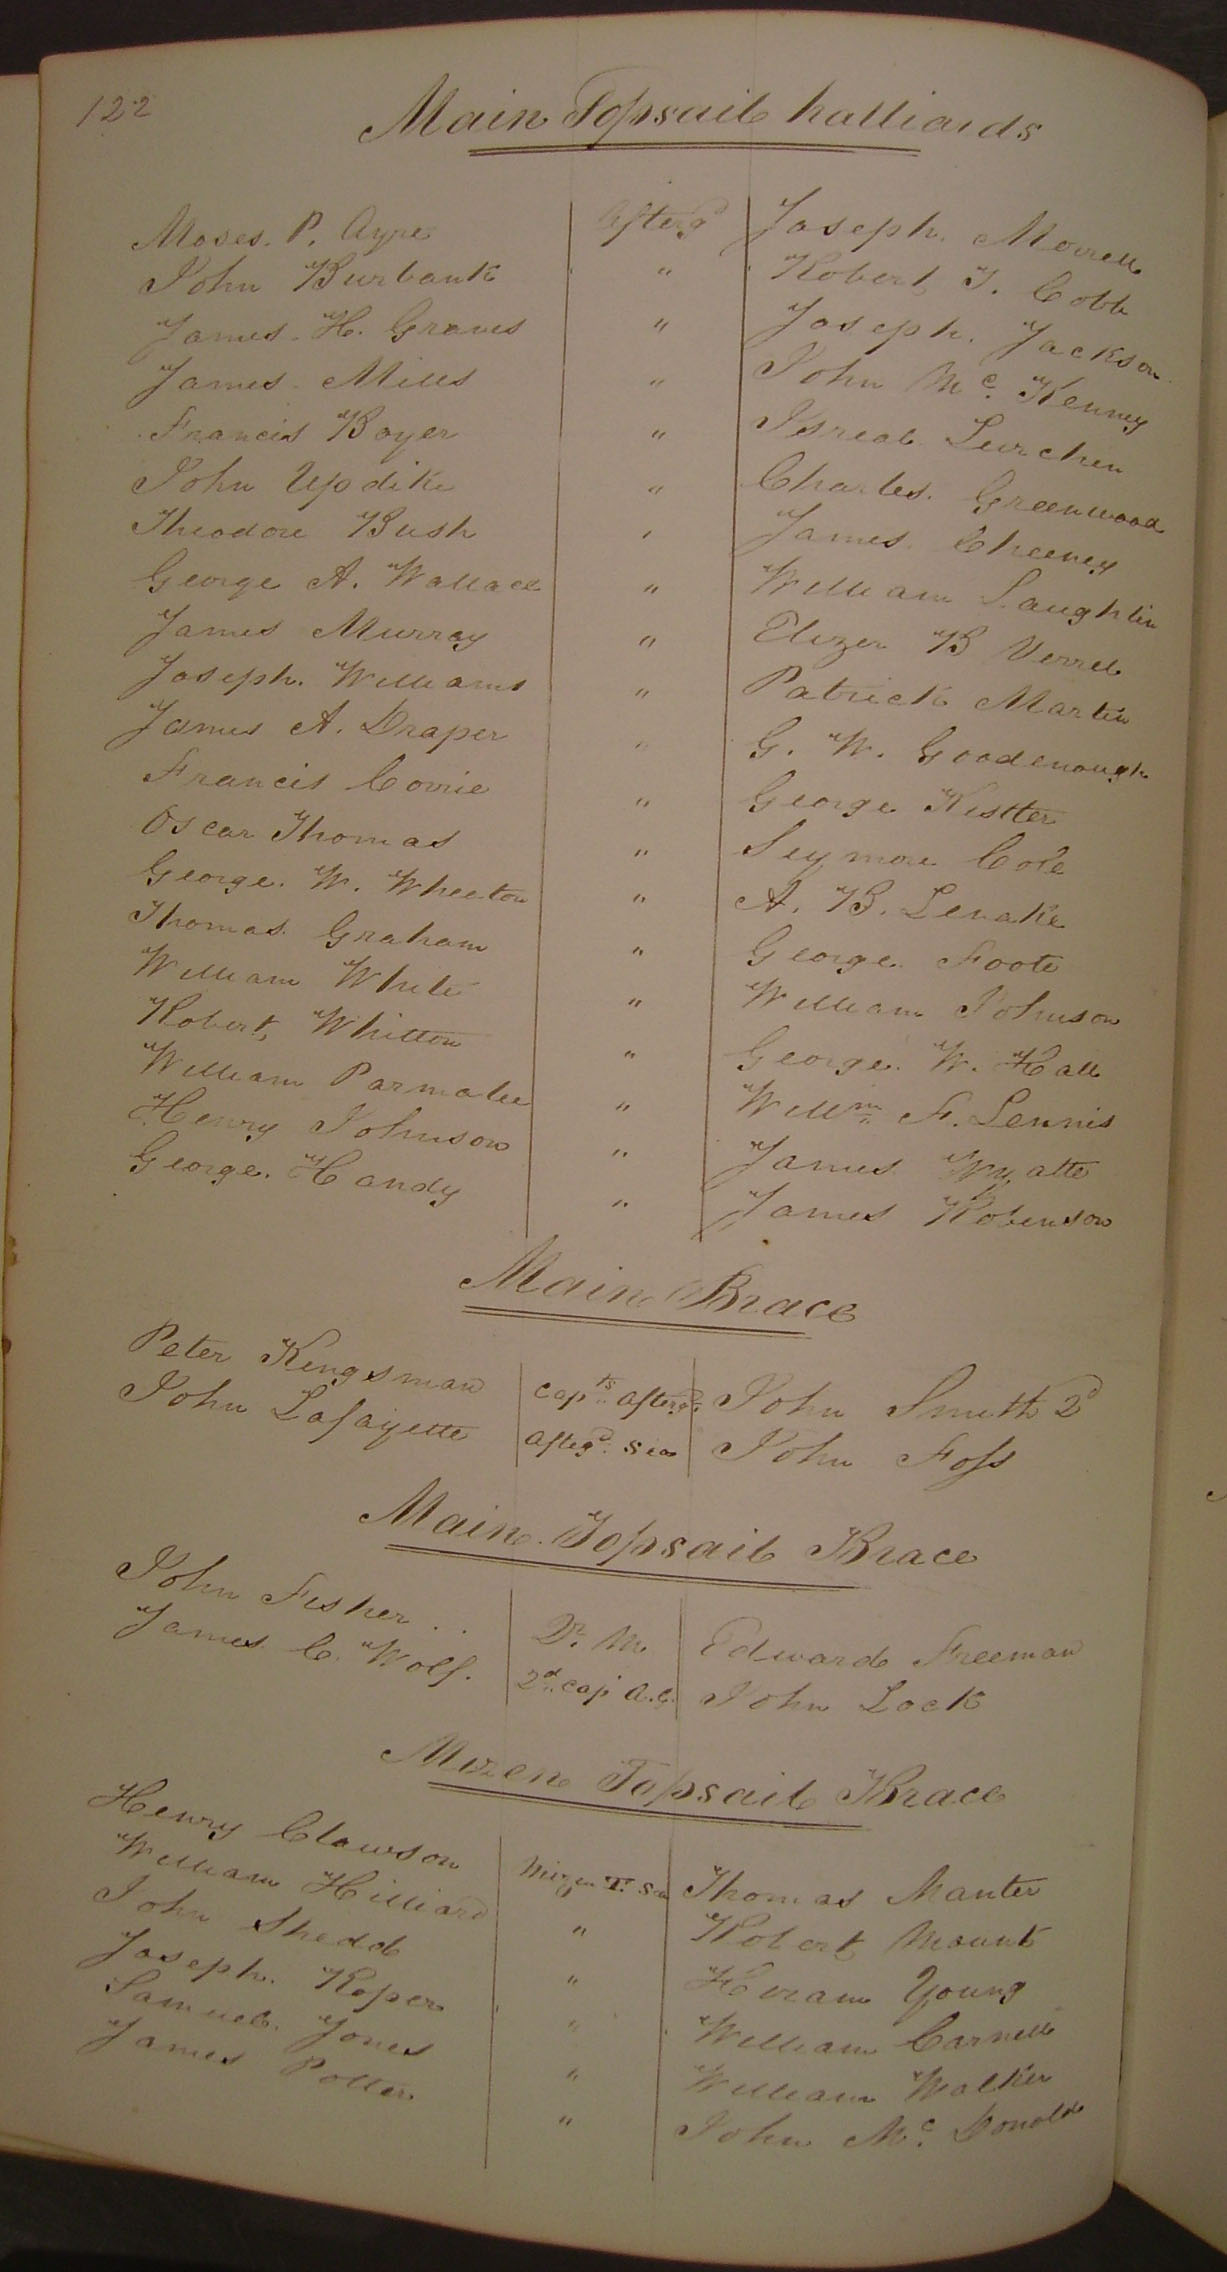 122
Main Topsail halliards
Moses. P. Ayre Afterg^d Joseph. Morrell
John Burbank " Robert T. Cobb
James. H. Graves " Joseph. Jackson
James. Mills " John M^c. Kenney
Francis Boyer " Isreal Lurchin
John Updike " Charles. Greenwood
Theodore Bush " James. Cheeney
George A. Wallace " William Laughlin
James Murray " Elizer B Verrel
Joseph. Williams " Patrick Martin
James A. Draper " G. W. Goodenough
Francis Corrie " George Kistter
Oscar Thomas " Seymore Cole
George. W. Wheeton " A. B. Levake
Thomas. Graham " George. Foote
William White " William Johnson
Robert, Whitton " George. W. Hall
William Parmalee " Will^m F. Lennis
Henry Johnson " James Wyatte
George. Handy " James Robinson
Main Brace
Peter Kingsman Cap^ts Afterg^d. John Smith 2^d
John Lafayette Afterg^d. Sea John Foss
Main. Topsail Brace
John Fisher . . Q^r. M. Edward Freeman
James C. Wolf. 2^d. Cap A.G. John Lock
Mizen Topsail Brace
Henry Clawson Mizen T. Sea Thomas Manter
William Hilliard " Robert Mount
John Shedd " Hiram Young
Joseph. Roper " William Carnell
Samuel. Jones " William Walker
James Potter " John M^c. Donald